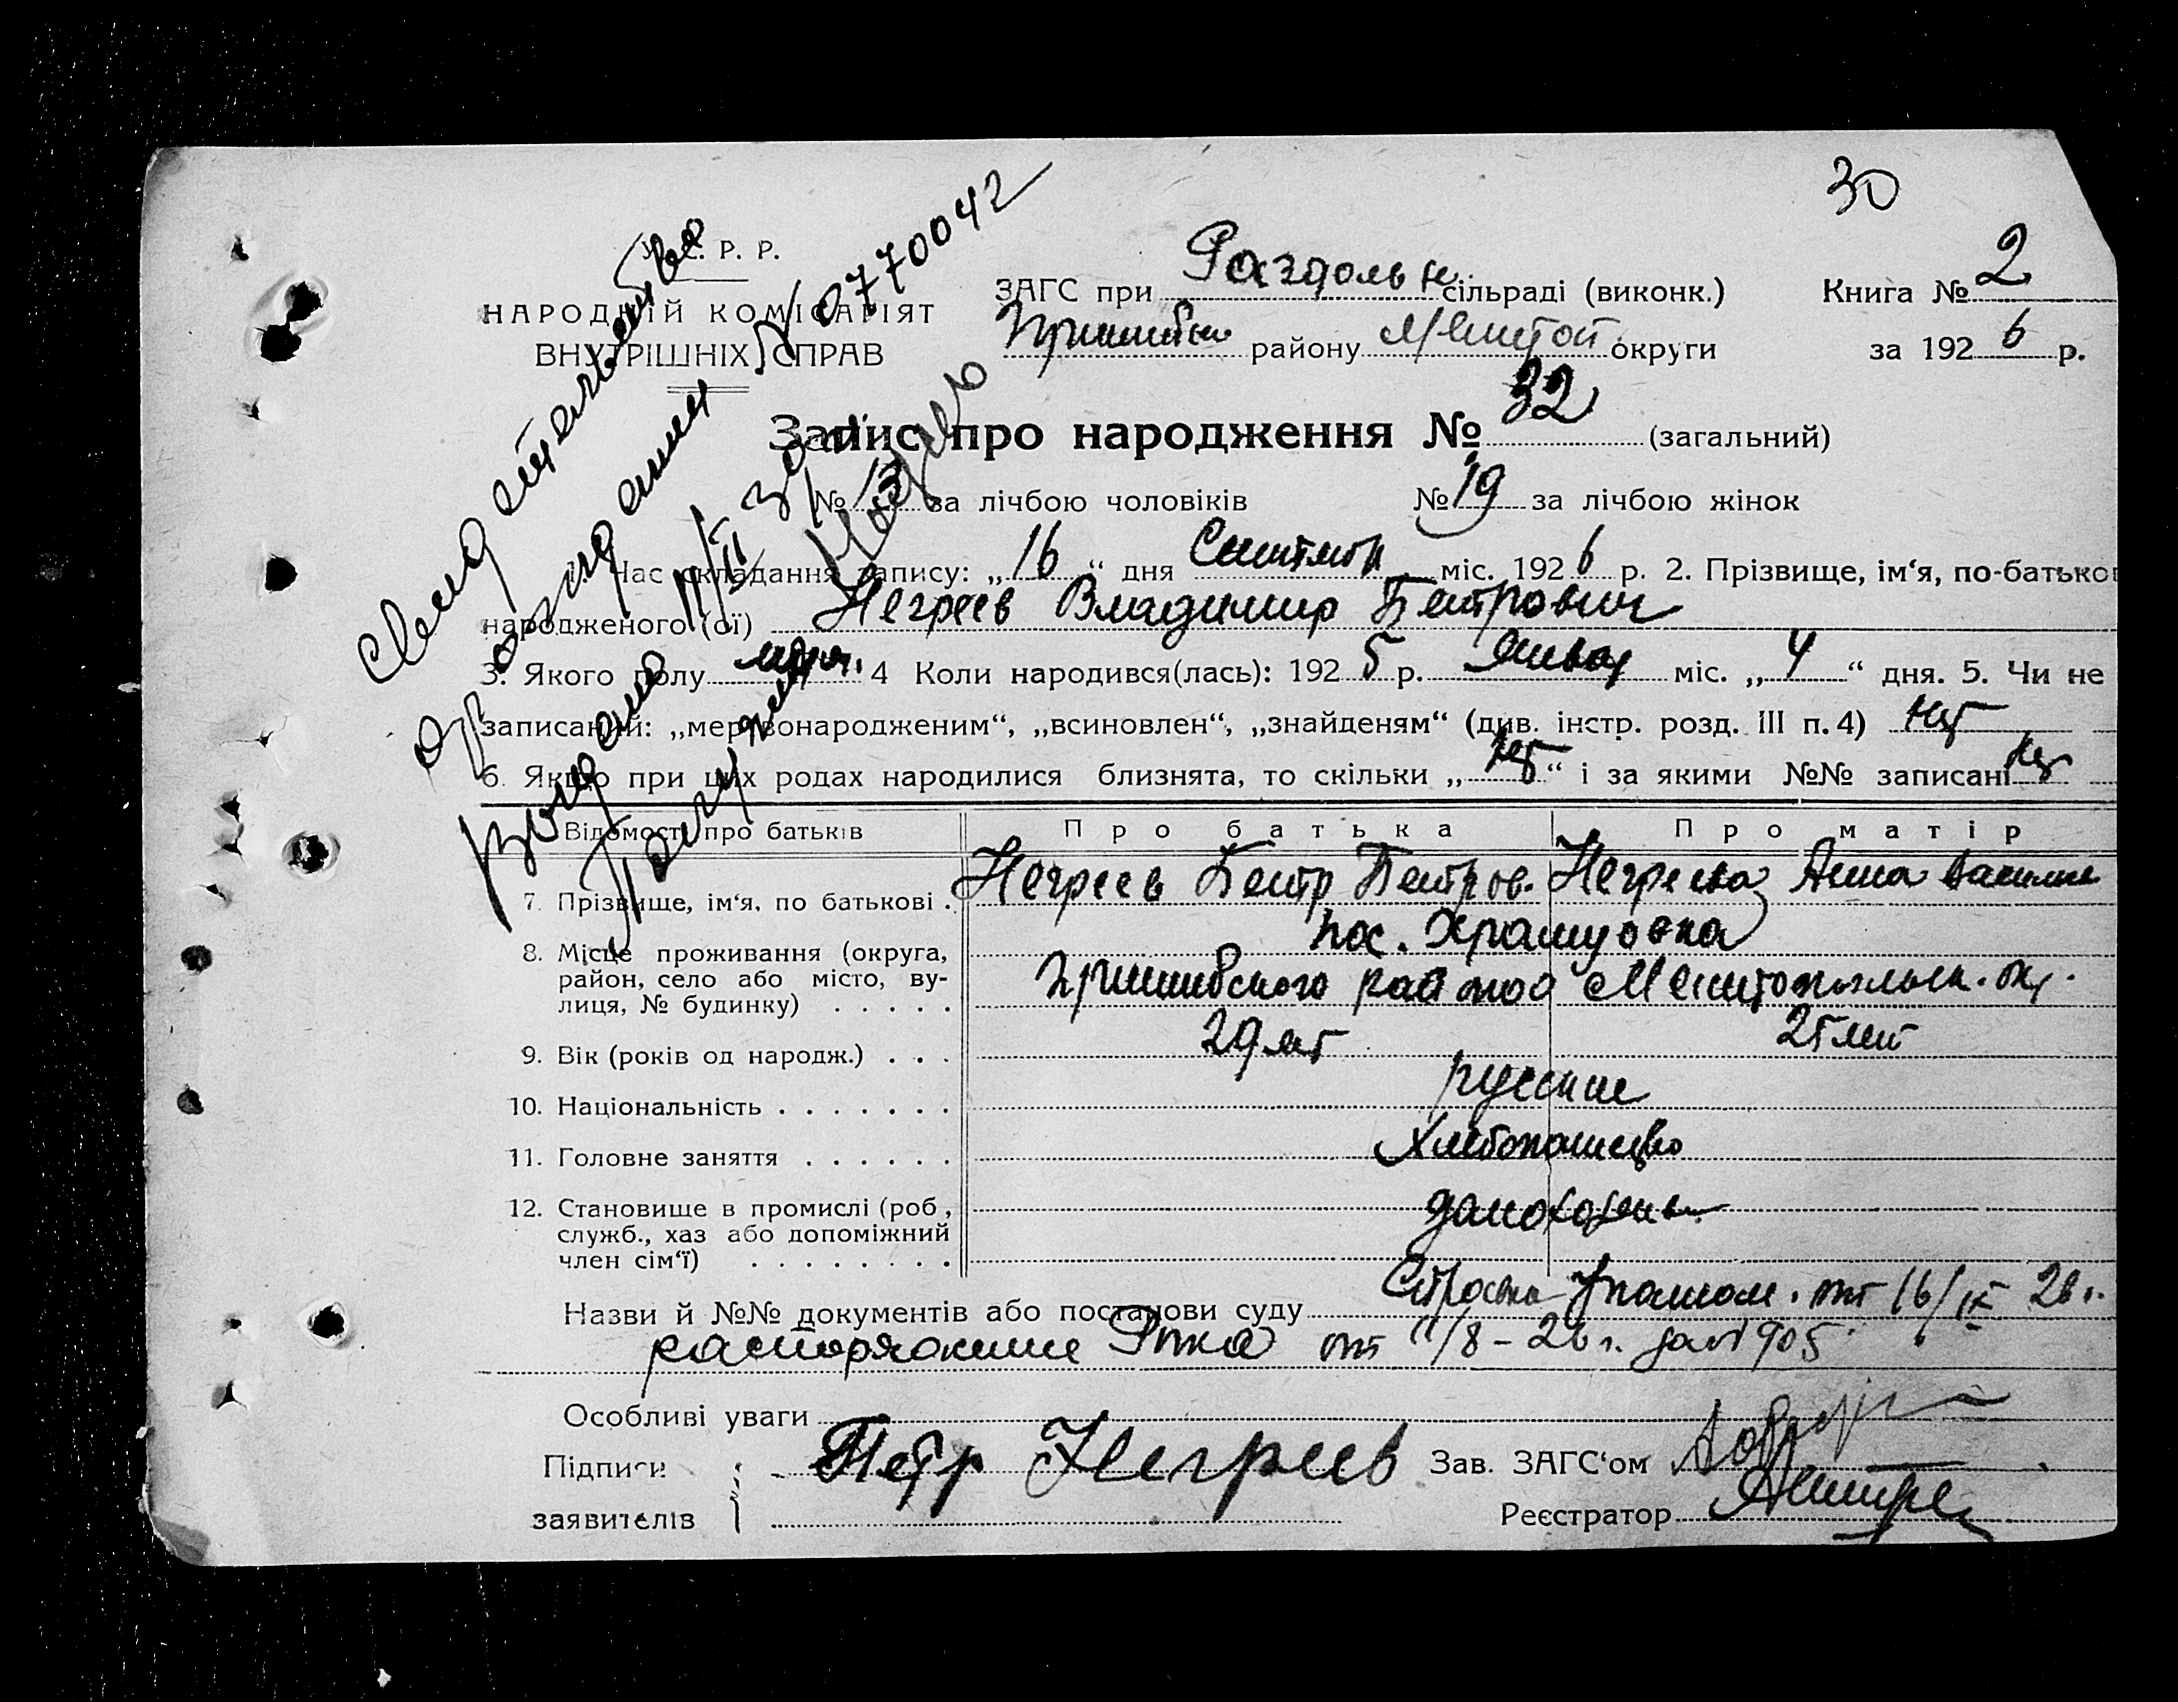 30
У. С. Р. Р.
НАРОДНІЙ КОМІСАРІЯТ
ВНУТРІШНІХ СПРАВ
ЗАГС при Раздольн сільраді (виконк.)
Пришибск району Мелитоп. округи
Книга № 2
за 1926 р.
Запис про народження № 32 (загальний)
№ 13 за лічбою чоловіків № 19 за лічбою жінок
Час складання запису: „16“ дня міс. 1926 р. 2. Прізвище, ім‘я, по-батьков
народженого (ої) Негреев Владимир Петрович
3. Якого полу муж. 4 Коли народився(лась): 1925 р. Январ міс. „4“ дня. 5. Чи не
записаний: „мертвонародженим“, „всиновлен“, „знайденям“ (див. інстр. розд. III п. 4) нет
6. Якщо при ціх родах народилися близнята, то скільки „нет“ і за якими №№ записані нет
Свидетельство
о рождении № 0770042
выдано
Відомості про батьків Про батька Про матір
7. Прізвище, ім‘я, по батькові . Негреев Петр Петров. Негреева Анна Василье
8. Місце проживання (округа,
район, село або місто, ву-
лиця, № будинку) . . . . .
пос.
Пришибского района Мелитопольск. ок.
9. Вік (років од народж.) . . . 29 лет 25 лет
10. Національність . . . . . . . русские
11. Головне заняття . . . . . . хлебопашество
12. Становище в промислі (роб.,
служб., хаз або допоміжний
член сім‘ї) . . . . . . . .
Назви й №№ документів або постанови суду от 16/IX 26 г.
распоряжение от 11/8 - 26 г. за № 905
Особливі уваги
Підписи
заявителів
Петр Негреев
Зав. ЗАГС‘ом
Реєстратор